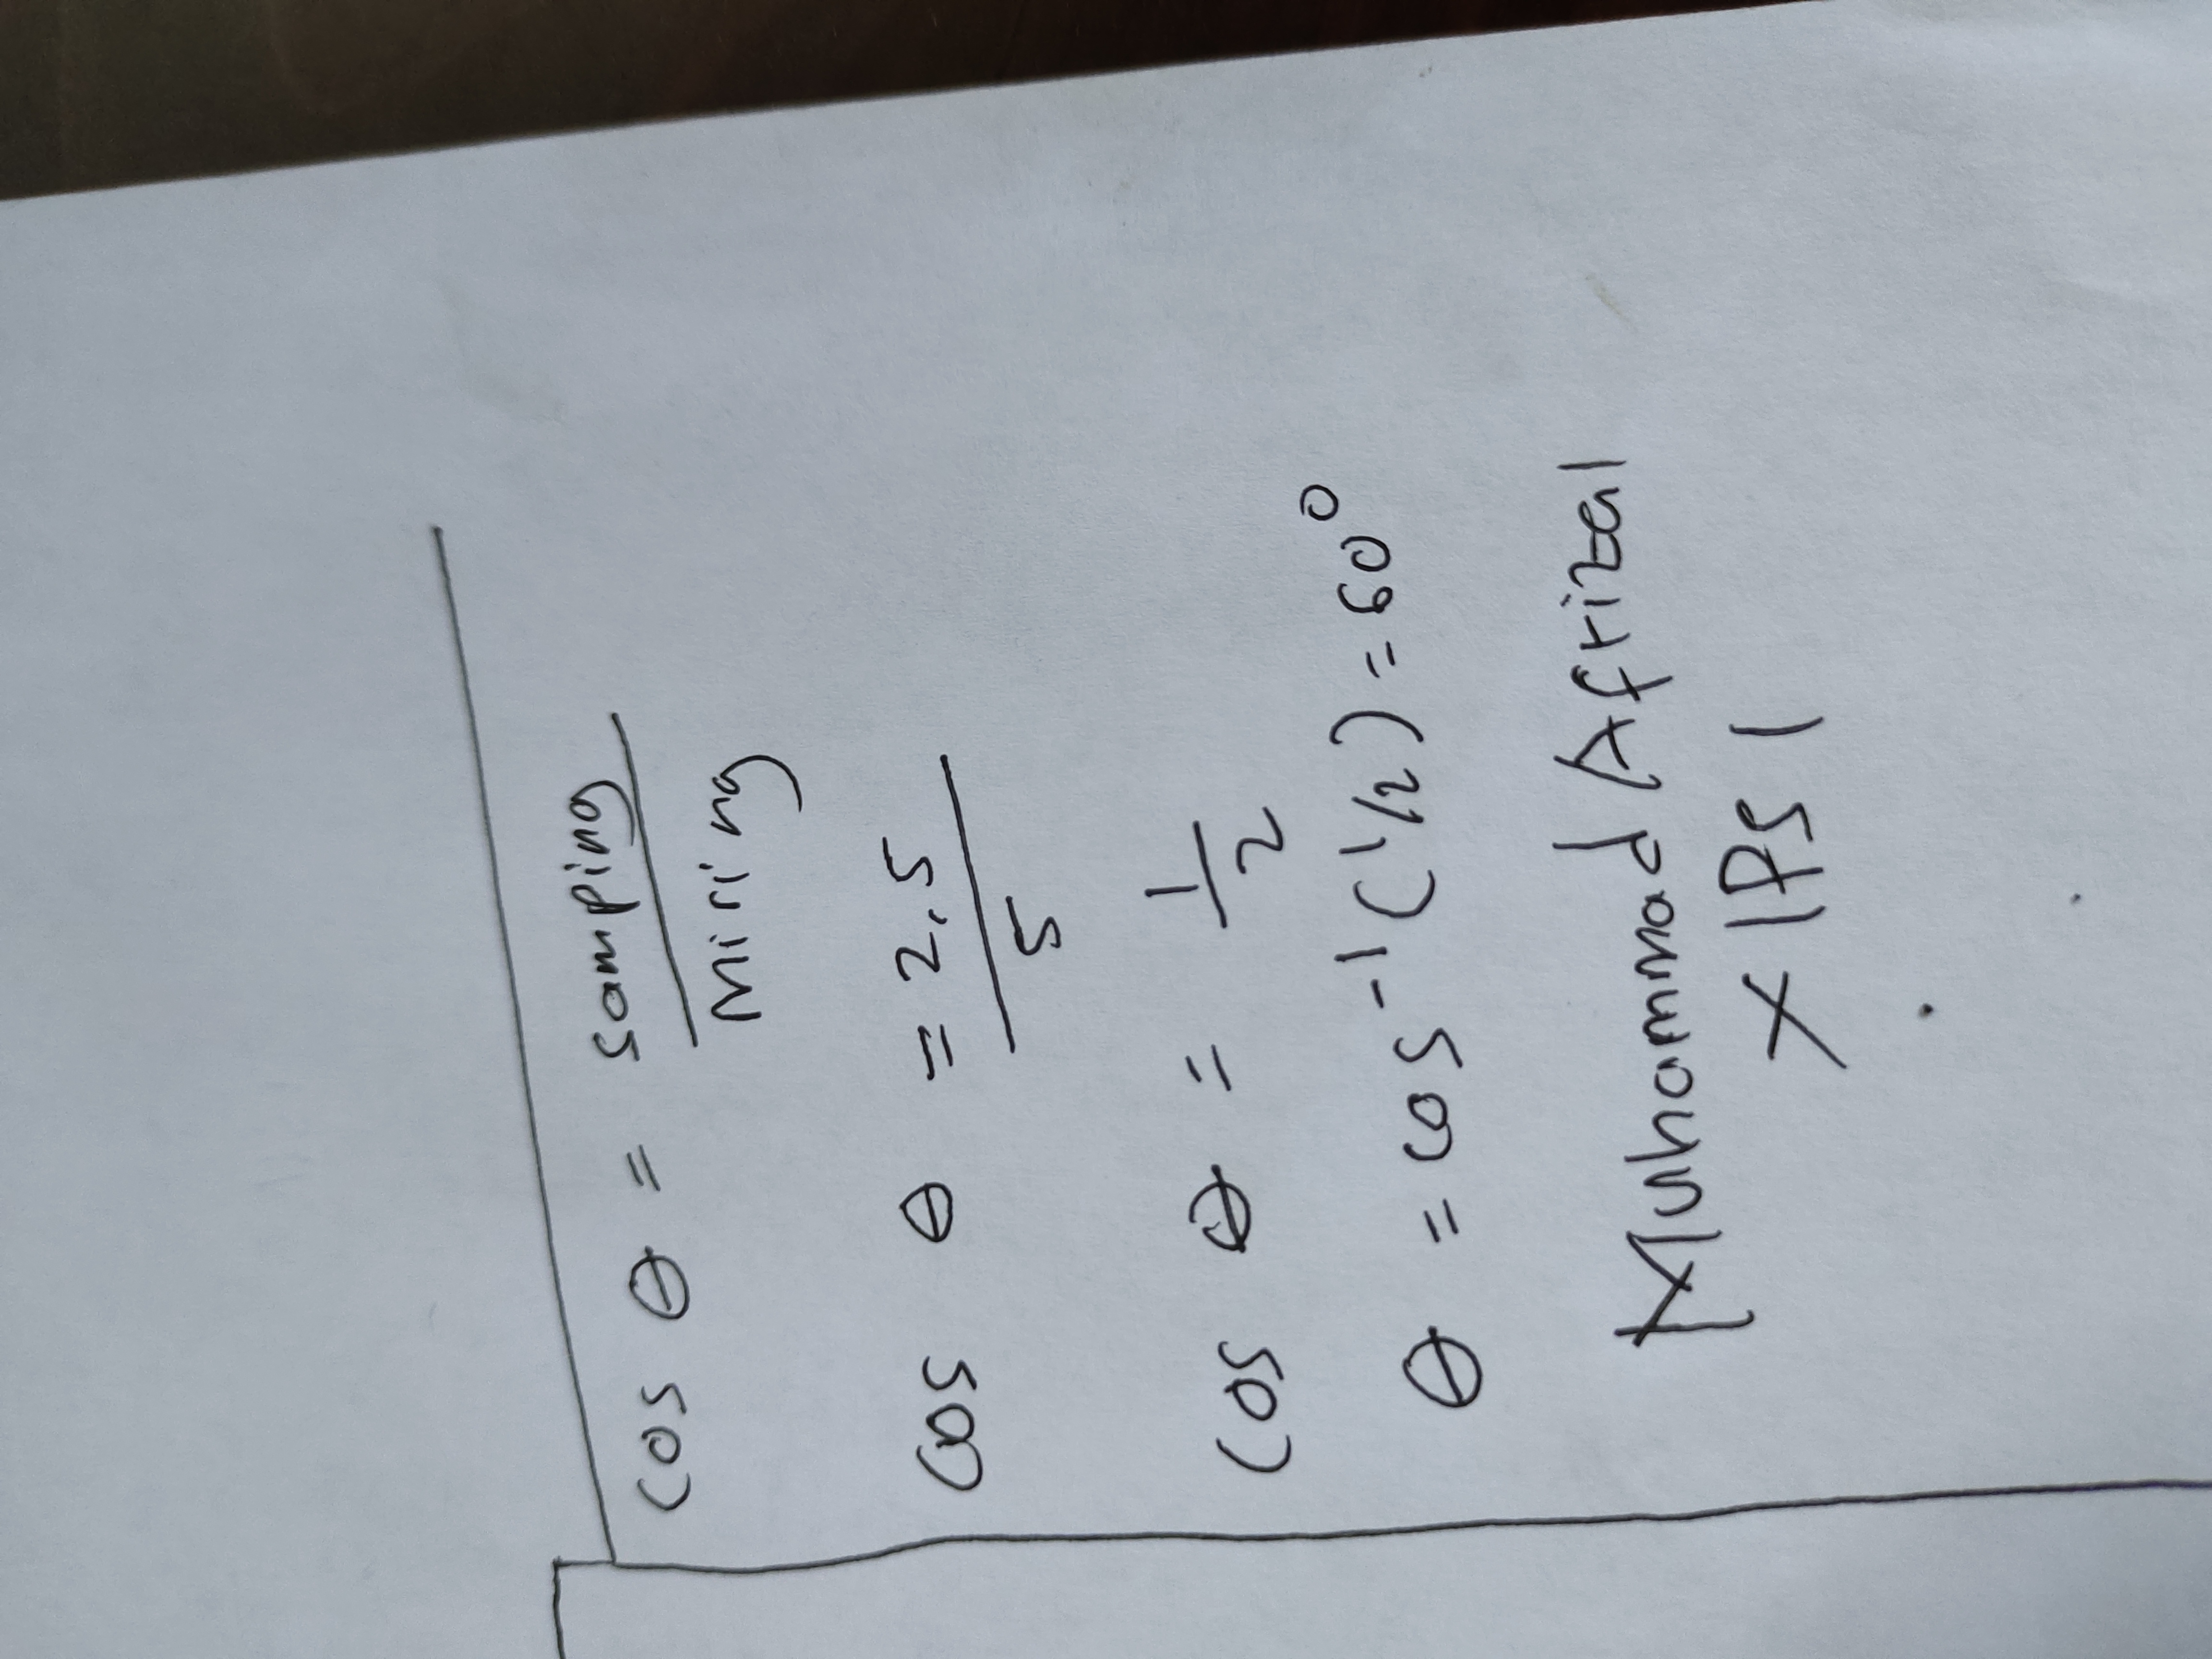 cos θ = samping / miring
cos θ = 2,5 / 5
cos θ = 1 / 2
θ = cos⁻¹ (1/2) = 60°
Muhammad Afrizal
X IPS 1